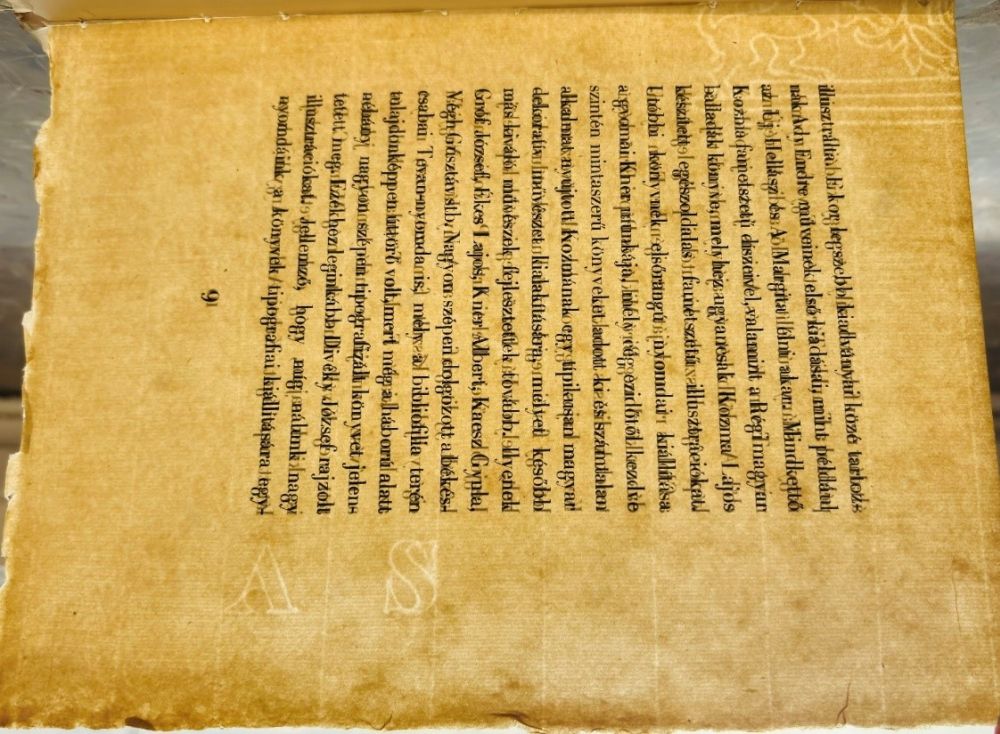 illusztrálta. E kor legszebb kiadványai közé tartozának
Ady Endre műveinek első kiadásai, mint például
az Uj Hellász és A Margita élni akar. Mindkettő
Kozma fametszetű díszeivel, valamint a Régi magyar
balladák könyve, melyhez ugyancsak Kozma Lajos
készített egészoldalas fametszetű illusztrációkat.
Utóbbi könyvnek elsőrangú nyomdai kiállítása
a gyomai Kner cég munkája, mely cég ezidőtől kezdve
szintén mintaszerű könyveket adott ki és számtalan
alkalmat nyujtott Kozmának egy tipikusan magyar
dekoratív művészet kialakítására, melyet később
más kiváló művészek fejlesztettek tovább. Ilyenek
Gróf József, Ékes Lajos, Kner Albert, Knesz Gyula,
Végh Gusztáv stb. Nagyon szépen dolgozott a békés-
csabai Tevan-nyomda is, mely a bibliofilia terén
tulajdonképpen úttörő volt, mert még a háború alatt
néhány nagyon szépen tipografizált könyvet jelen-
tetett meg. Ezekhez leginkább Divéky József rajzolt
illusztrációkat. Jellemző, hogy míg nálunk nagy
nyomdáink a könyvek tipografiai kiállítására egy-
9
A S